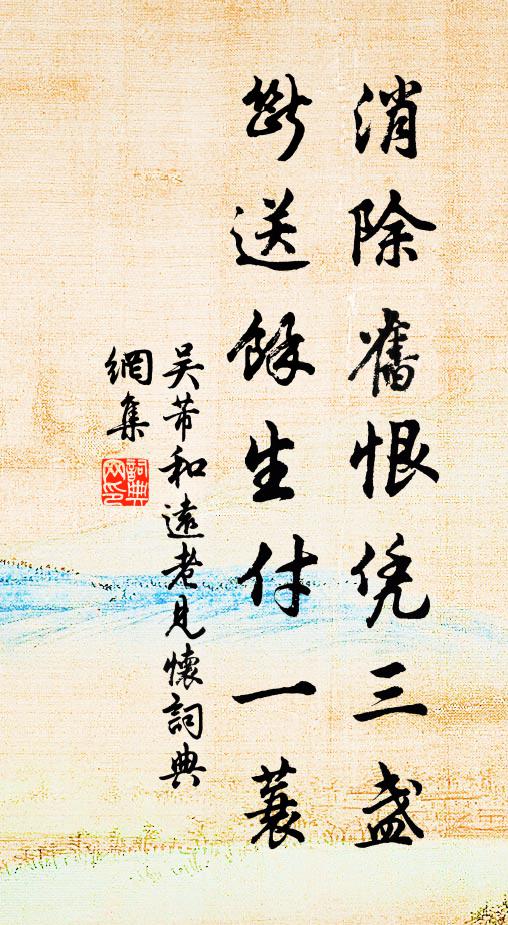 消除舊恨凭三盏
斷送餘生付一蓑
吴芾和遠老見懷詞典
網集
詞典網印